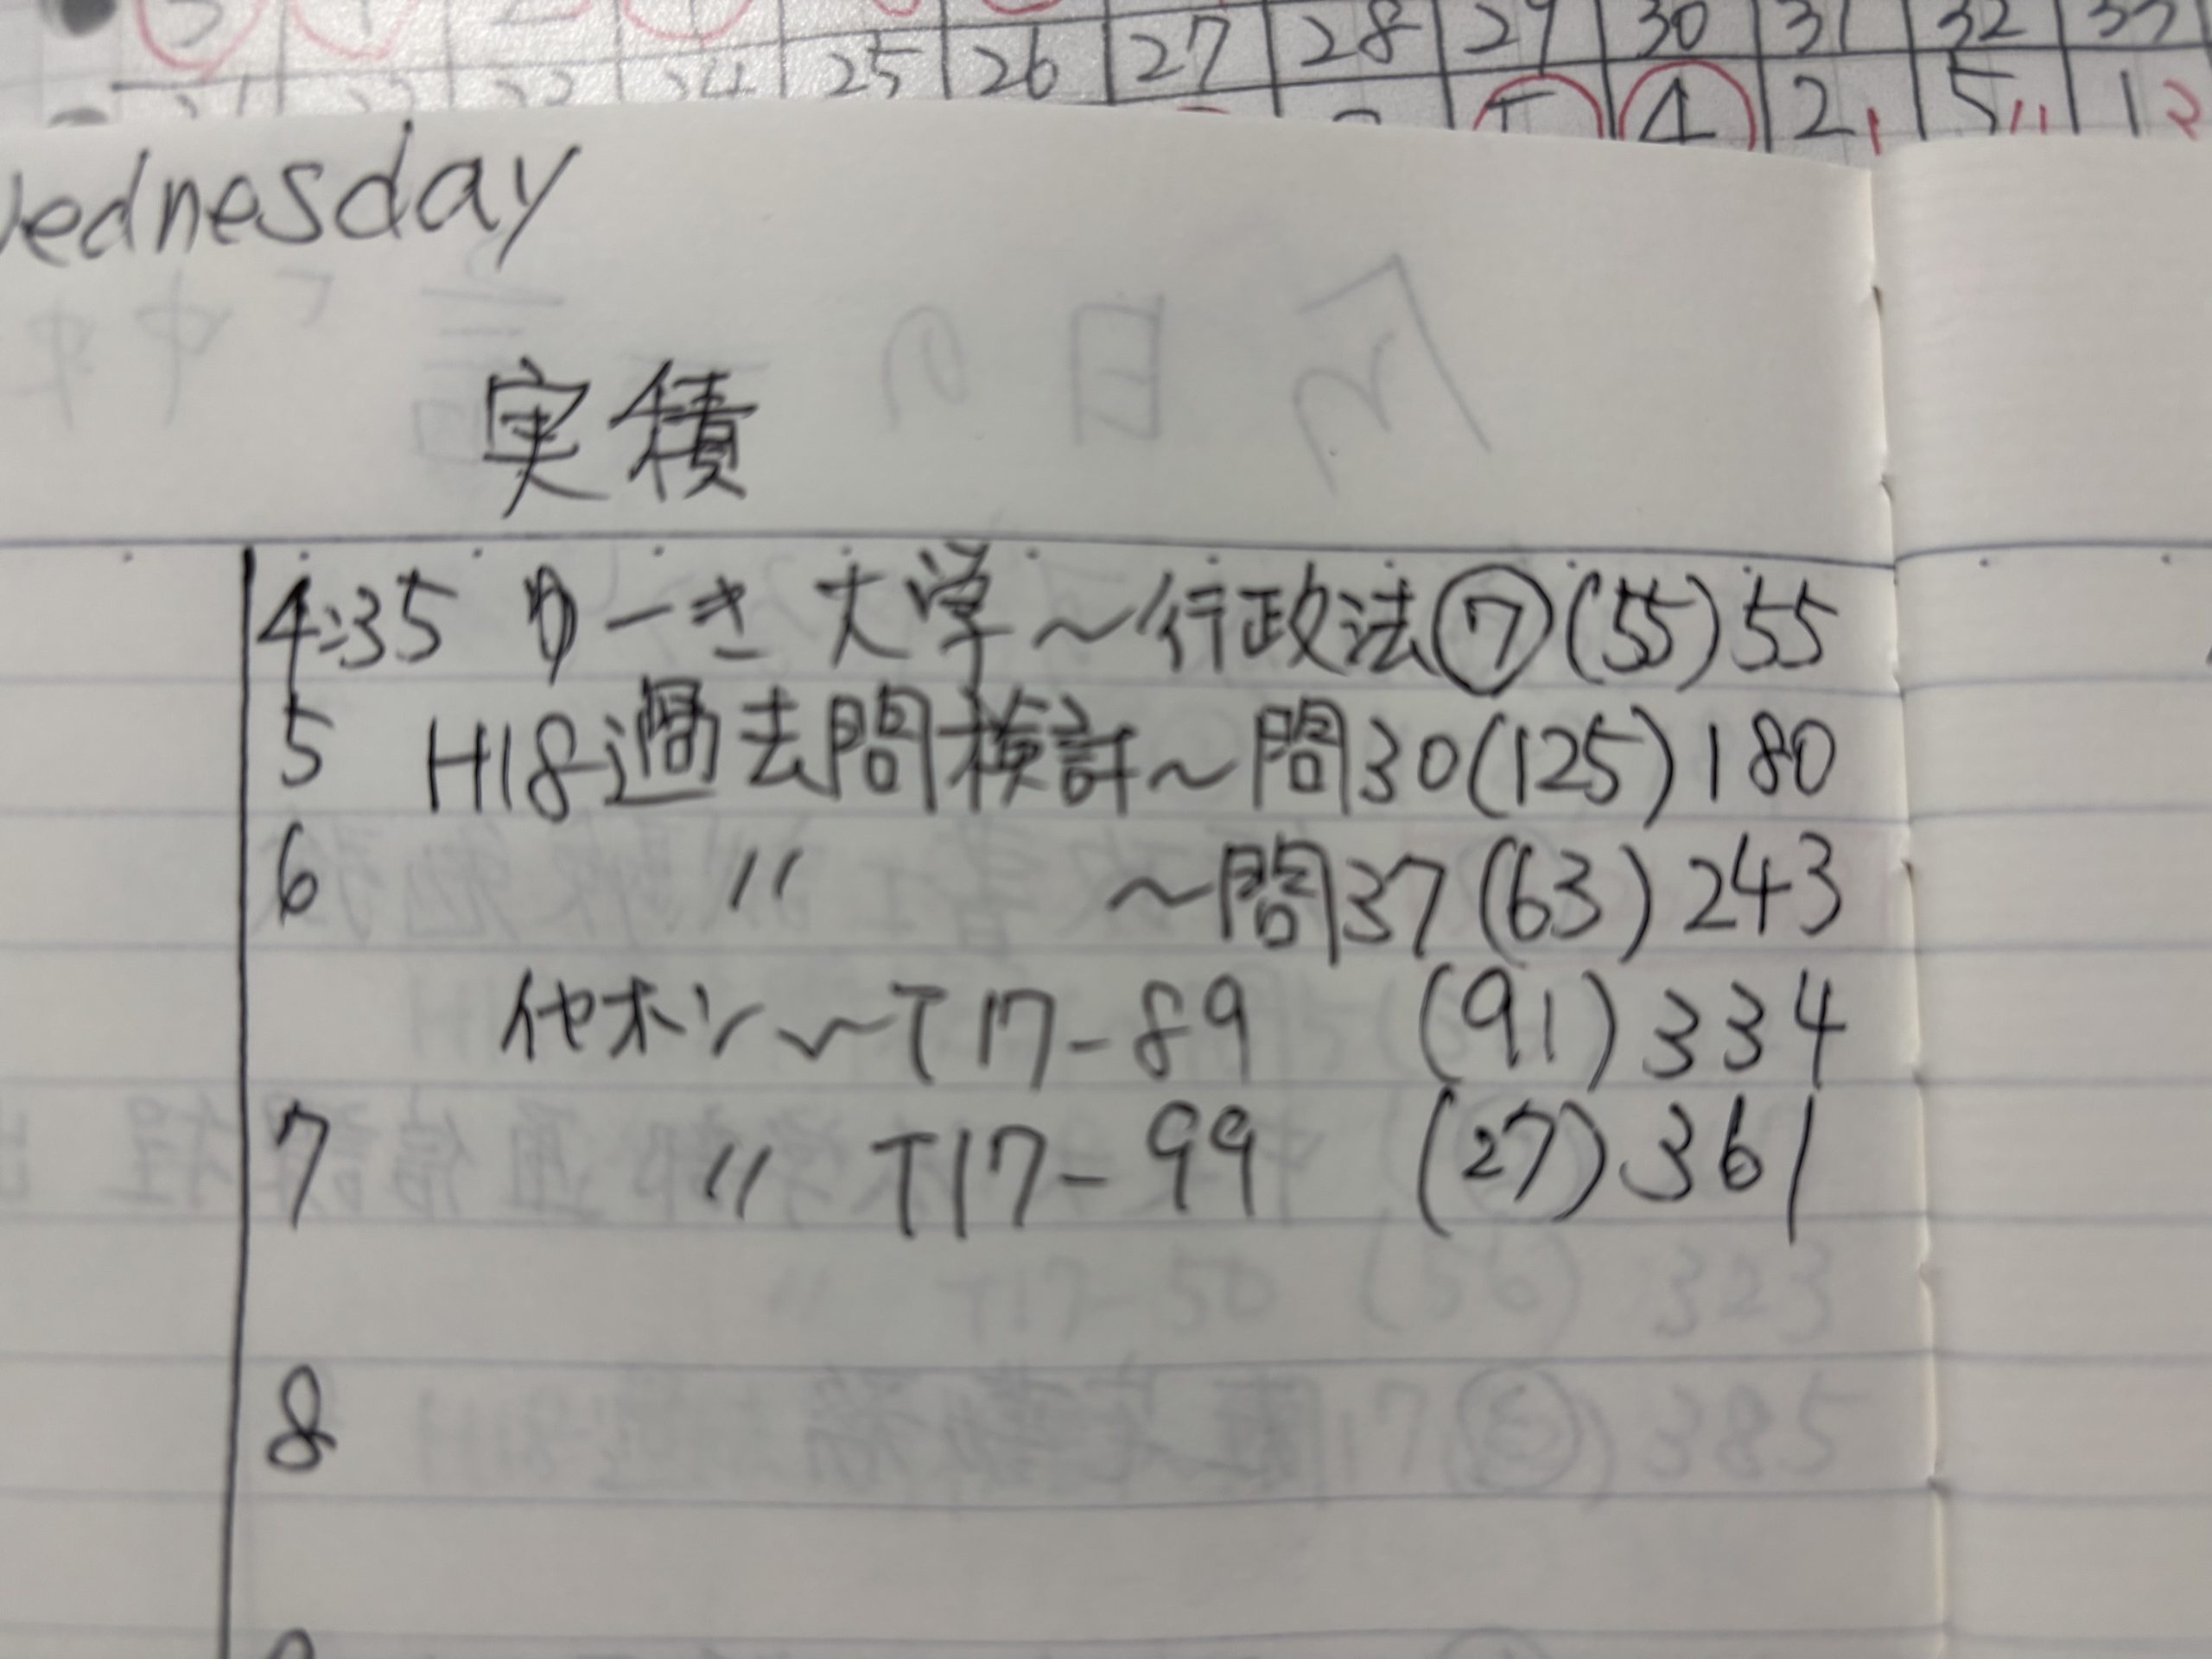 25 26 27 28 29 30 31 32 33
4 2 5 1
Wednesday
実積
4:35 ゆーき大学~行政法⑦(55)55
5 H18過去問検討~問30(125)180
6 〃 ~問37(63)243
他ホン~T17-89 (91)334
7 〃 T17-99 (27)361
8